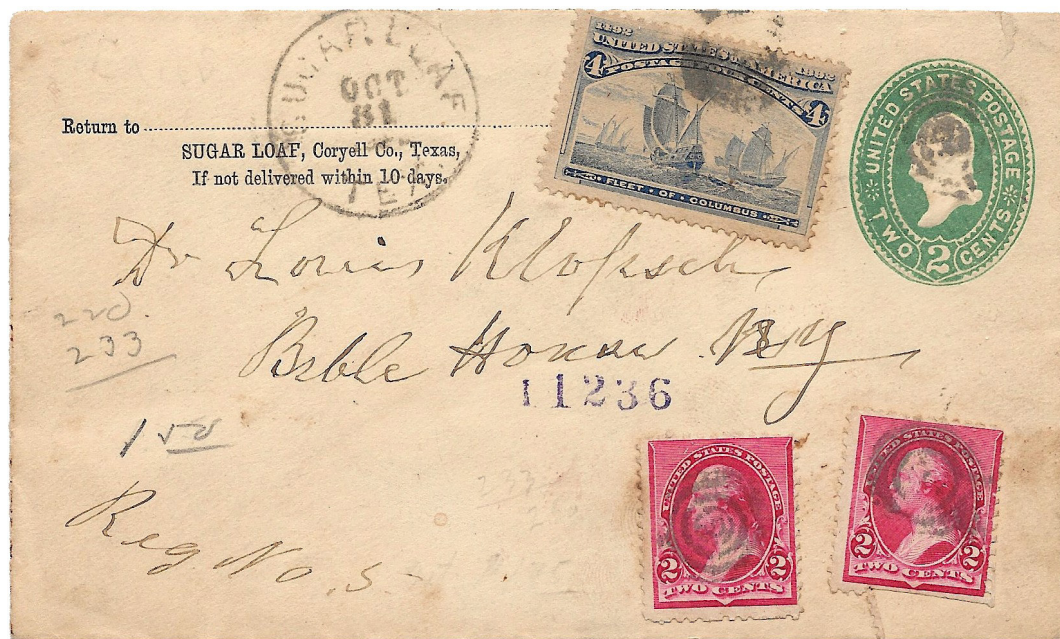 SUGAR LOAF
OCT
31
TEX.
Return to
SUGAR LOAF, Coryell Co., Texas,
If not delivered within 10 days.
1492 1892
UNITED STATES OF AMERICA
POSTAGE FOUR CENTS
4 4
FLEET OF COLUMBUS
UNITED STATES POSTAGE
TWO 2 CENTS
Dr Louis Klopsch
Bible House NY
11236
220
233
150
Reg No. 5
UNITED STATES POSTAGE
2 2
TWO CENTS
UNITED STATES POSTAGE
2 2
TWO CENTS